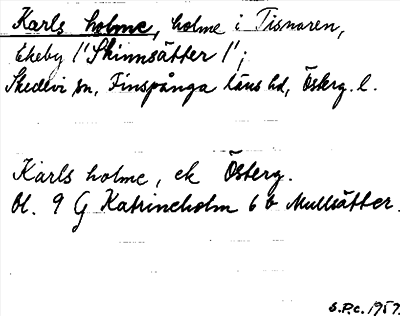 Karls holme, holme i Tisnaren,
Ekeby /'Skinnsätter /';
Skedevi sn, Finspånga läns hd, Österg. l.
Karls holme, ek Österg.
Bl. 9 G Katrineholm 6 b Mullsätter.
S.P.c. 1957.